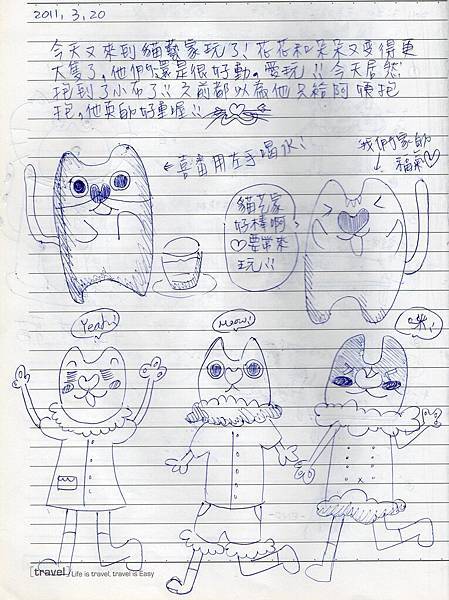 2011.3.20
今天又來到貓藝家玩了!花花和朵朵又變得更
大隻了,他們還是很好動。愛玩!!今天居然
抱到了小布了!!之前都以為他只給阿姨抱
抱。他真的好重喔!!
←喜番用左手喝水!
我們家的
福氣
貓藝家
好棒啊!
要常來
玩!!
Yeah!
Meow!
咪!
[travel] Life is travel, travel is Easy